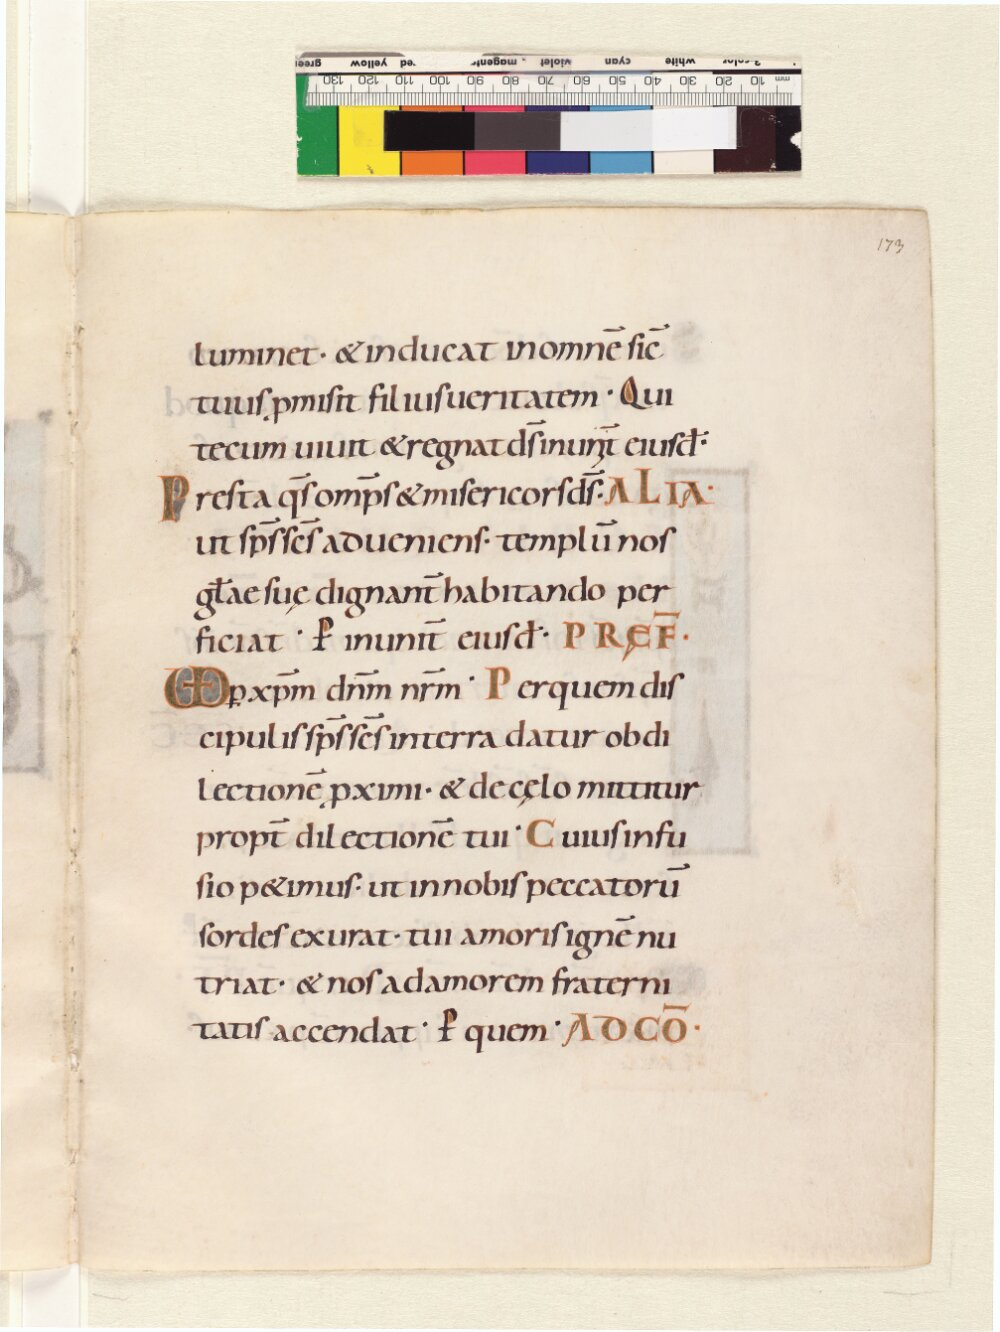 mm 10 20 30 40 50 60 70 80 90 100 110 120 130
3-color white cyan violet magenta red yellow green
173
luminet· & inducat in omnē sic̄
tuus p̱misit filius ueritatem· Qui
tecum uiuit & regnat ds̄ in unit̄ eiusd̄·
Presta qs̄ omp̄s & misericors ds̄· ALIA·
ut sps̄ scs̄ adueniens· templū nos
gl̄ae suę dignant̄ habitando per
ficiat· P̄ in unit̄ eiusd̄· PRĘF̄·
VD p̱ xpm̄ dnm̄ nrm̄· Per quem dis
cipulis sps̄ scs̄ in terra datur ob di
lectionē p̱ximi· & de cęlo mittitur
propt̄ dilectionē tui· Cuius infu
sio p&imus· ut in nobis peccatorū
sordes exurat· tui amoris ignē nu
triat· & nos ad amorem fraterni
tatis accendat· P̄ quem· AD CŌ·